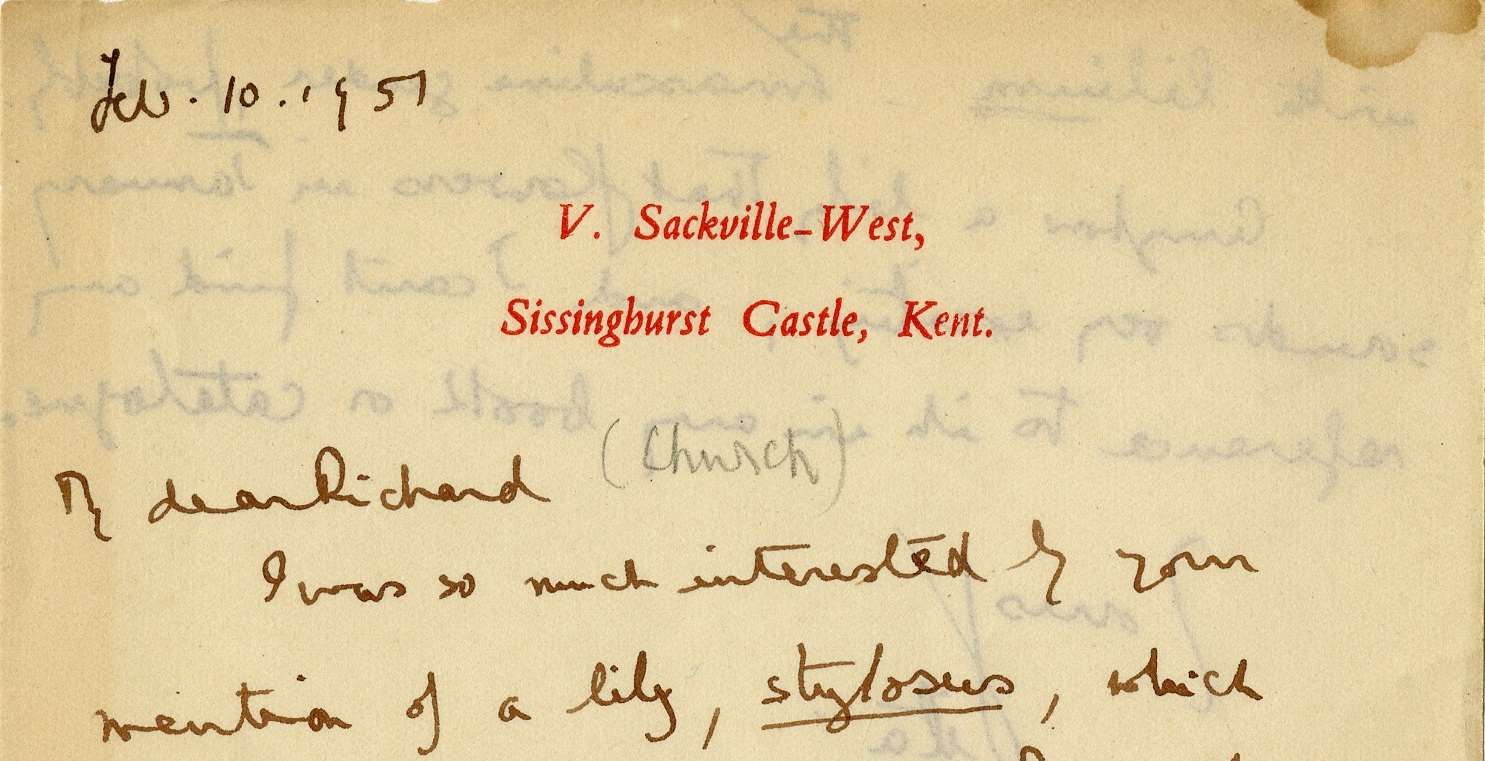 Feb. 10. 1951
V. Sackville-West,
Sissinghurst Castle, Kent.
(Church)
My dear Richard
I was so much interested by your
mention of a lily, stylosus, which